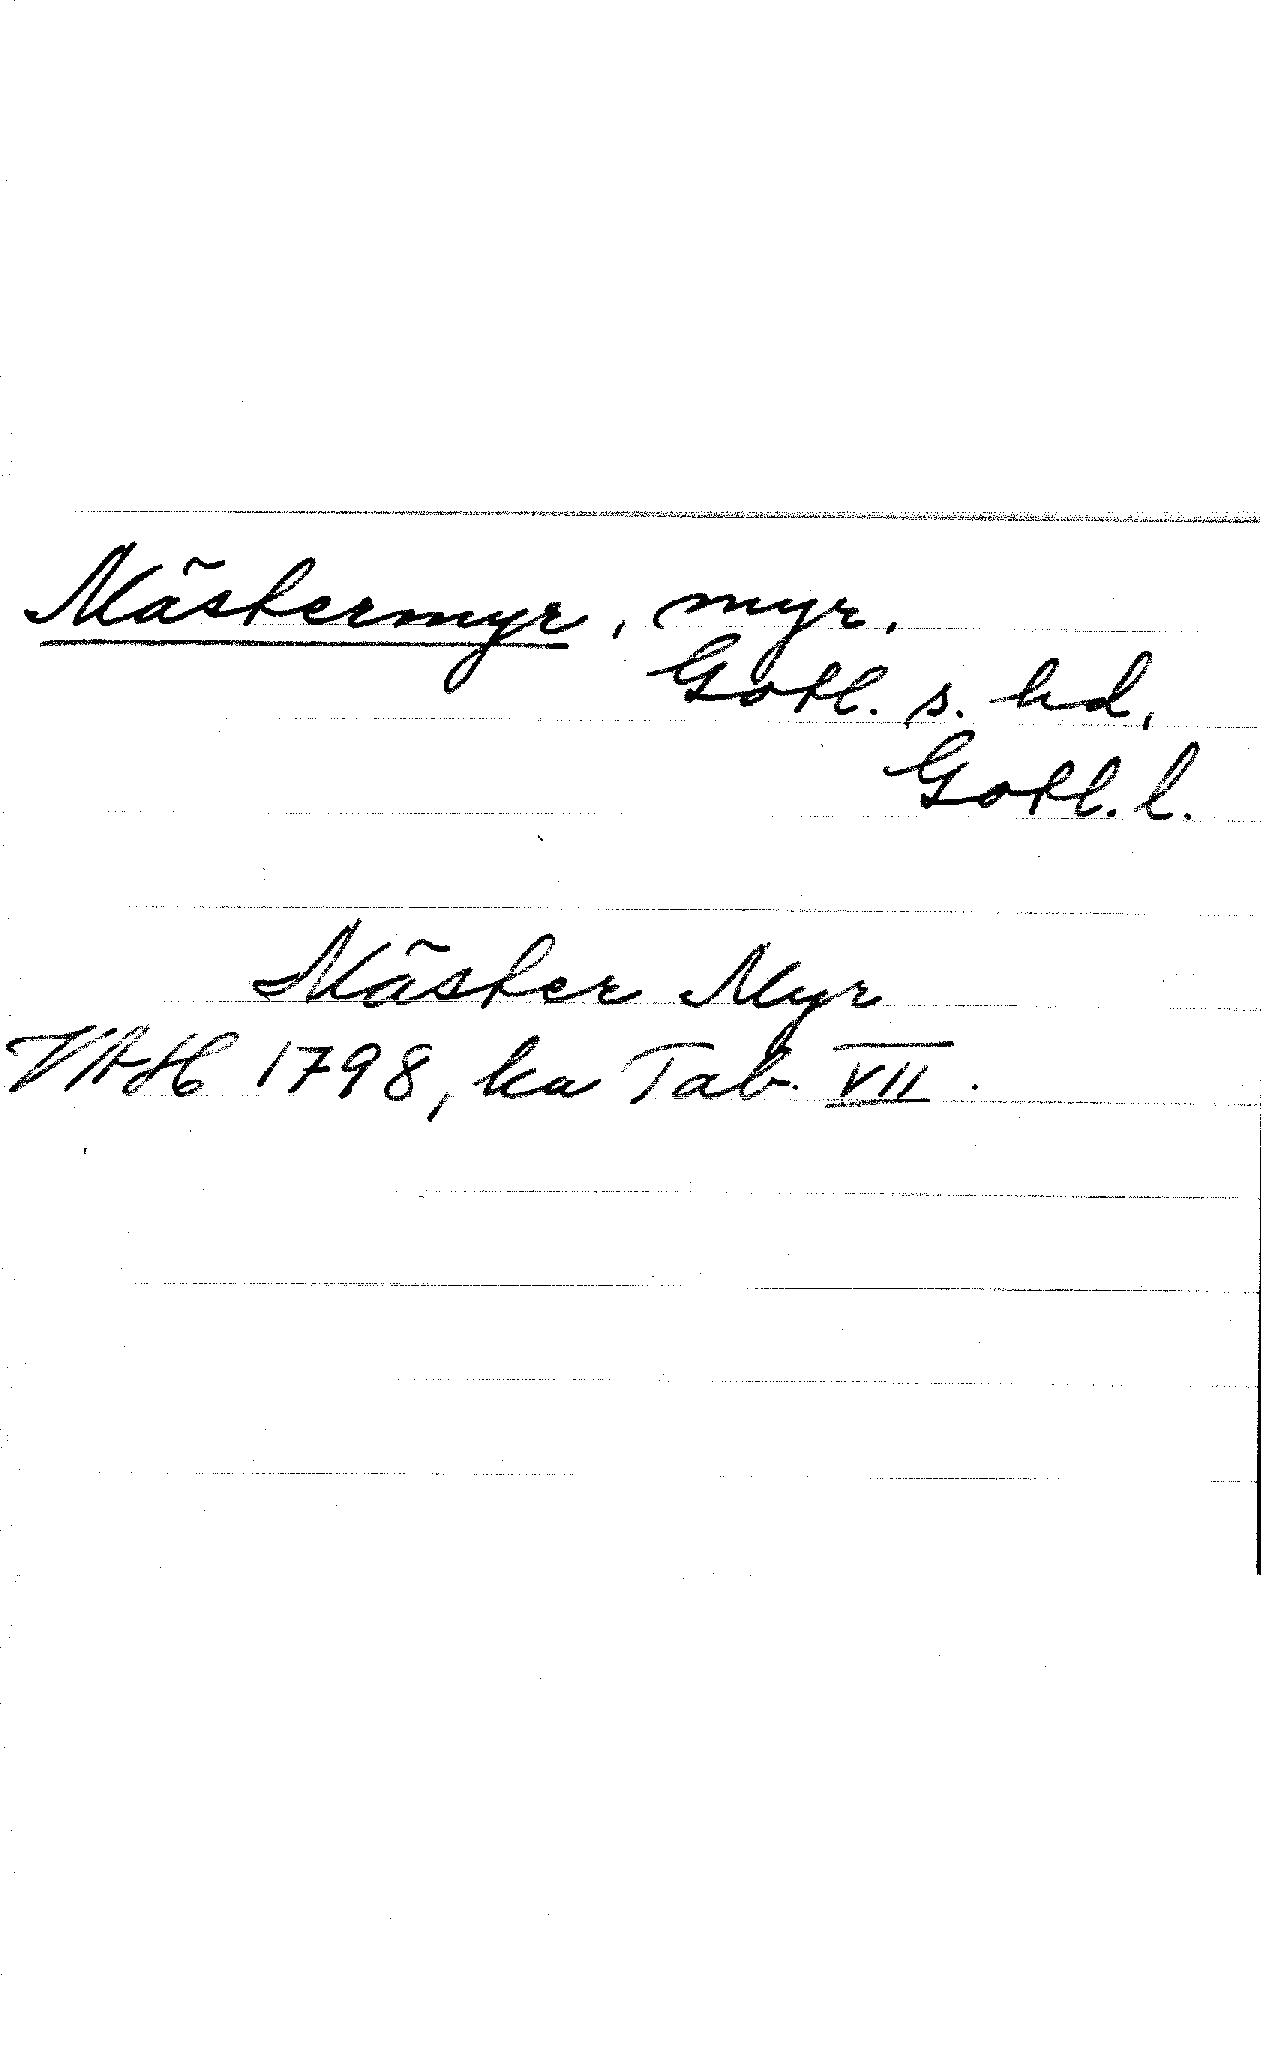 Mästermyr, myr,
Gotl. s. hd,
Gotl. l.
Mäster Myr
VAH 1798, ka Tab. VII.